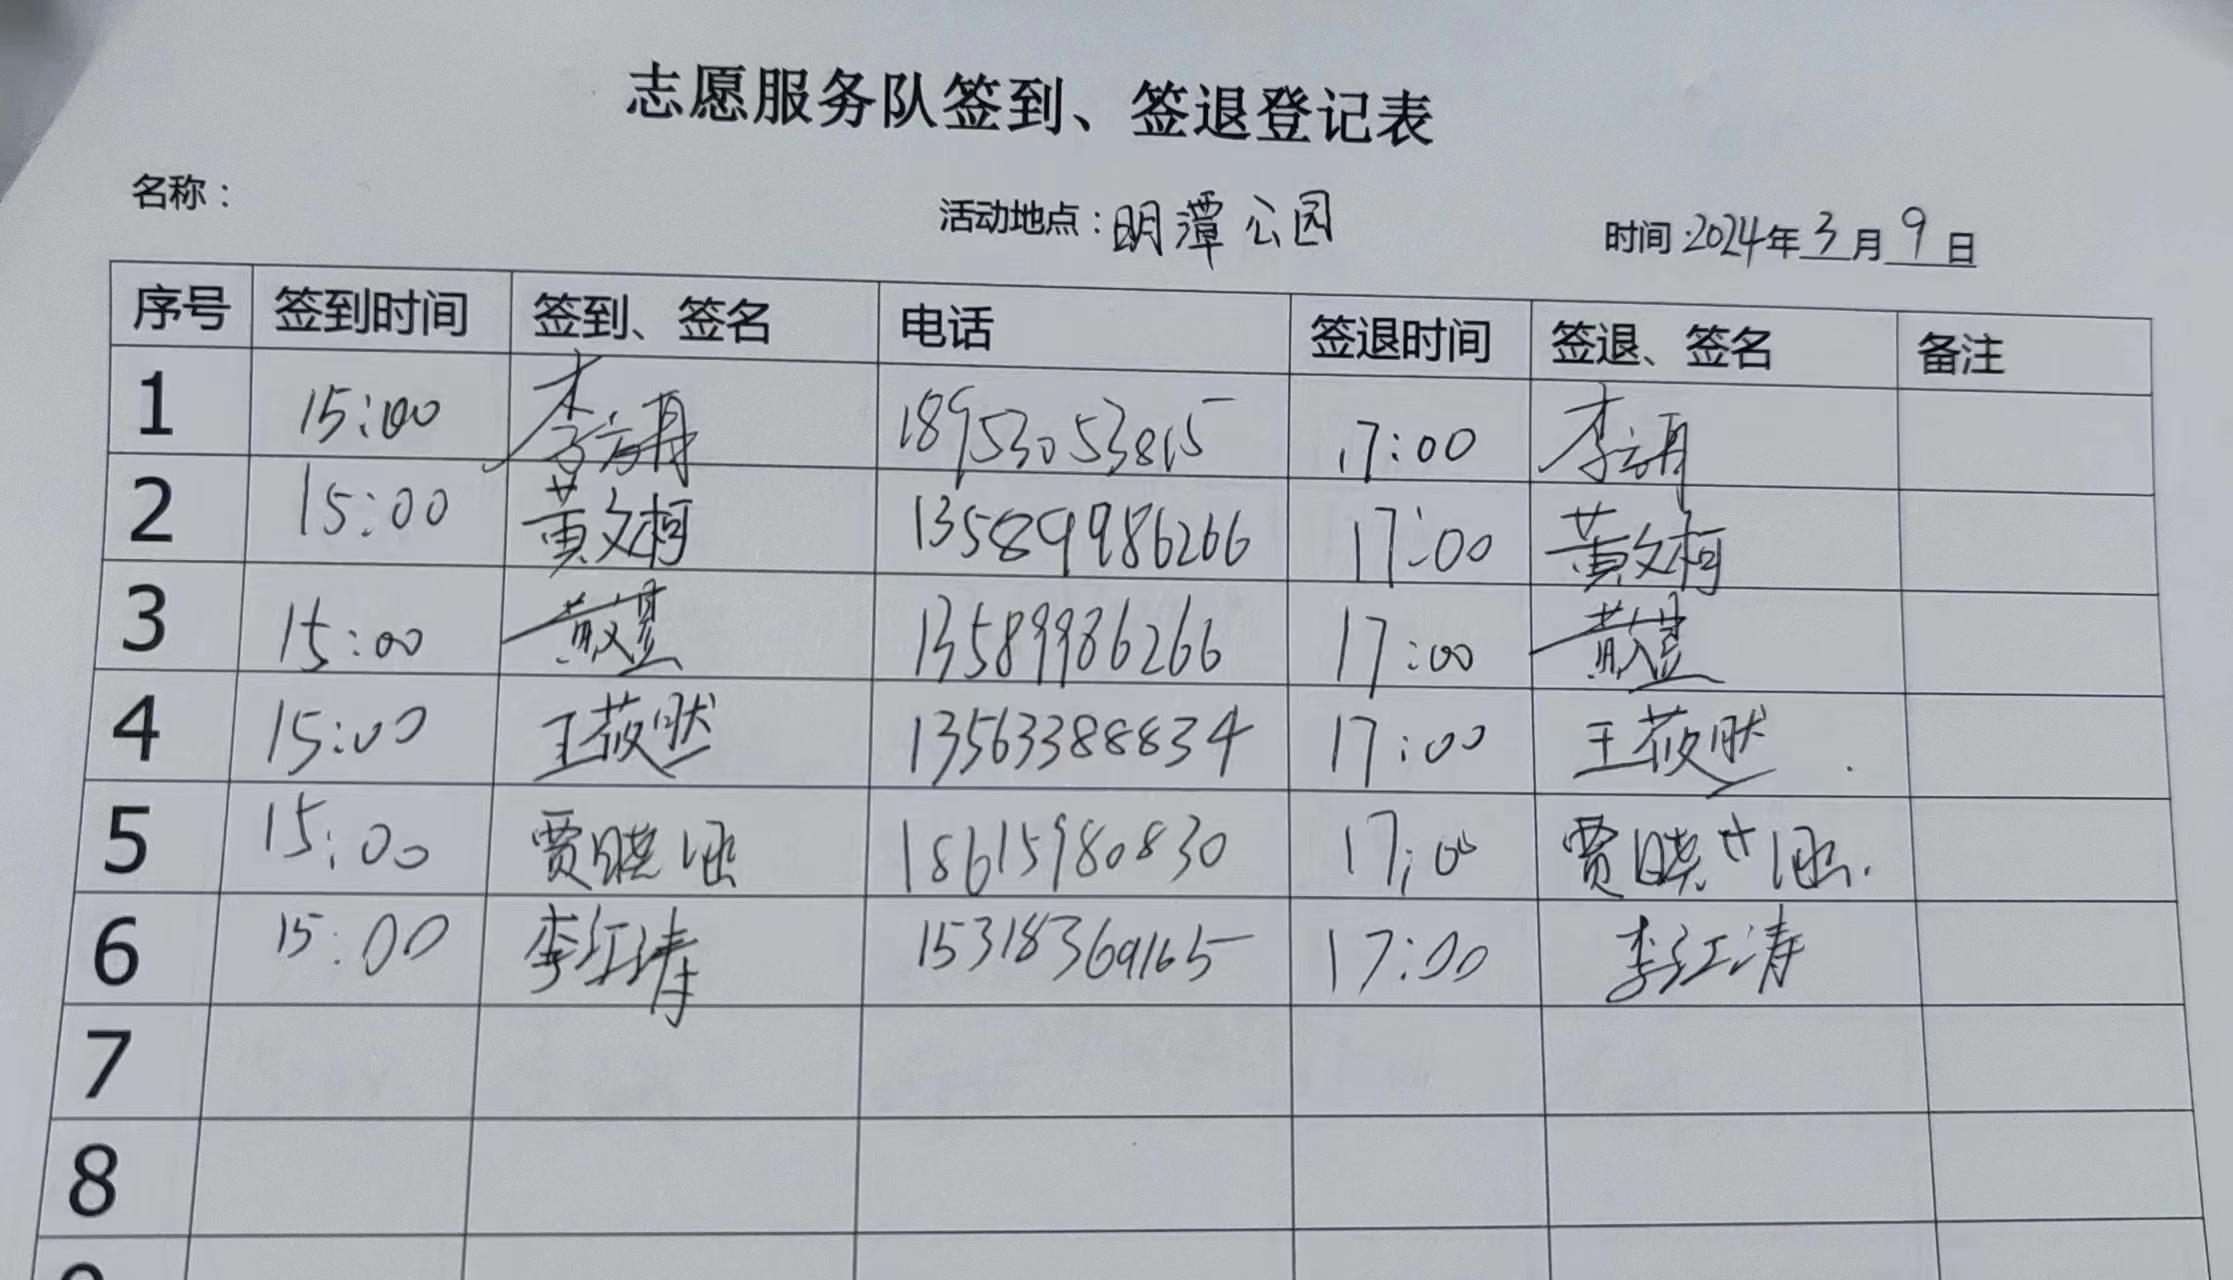 志愿服务队签到、签退登记表
名称：
活动地点：明潭公园
时间:2024年3月9日
序号 签到时间 签到、签名 电话 签退时间 签退、签名 备注
1 15:00 18953053815 17:00
2 15:00 黄文柯 13589986266 17:00 黄文柯
3 15:00 13589986266 17:00
4 15:00 王莜然 13563388834 17:00 王莜然
5 15:00 贾晓涵 18615980830 17:00 贾晓涵
6 15:00 李红涛 15318369165 17:00 李红涛
7
8